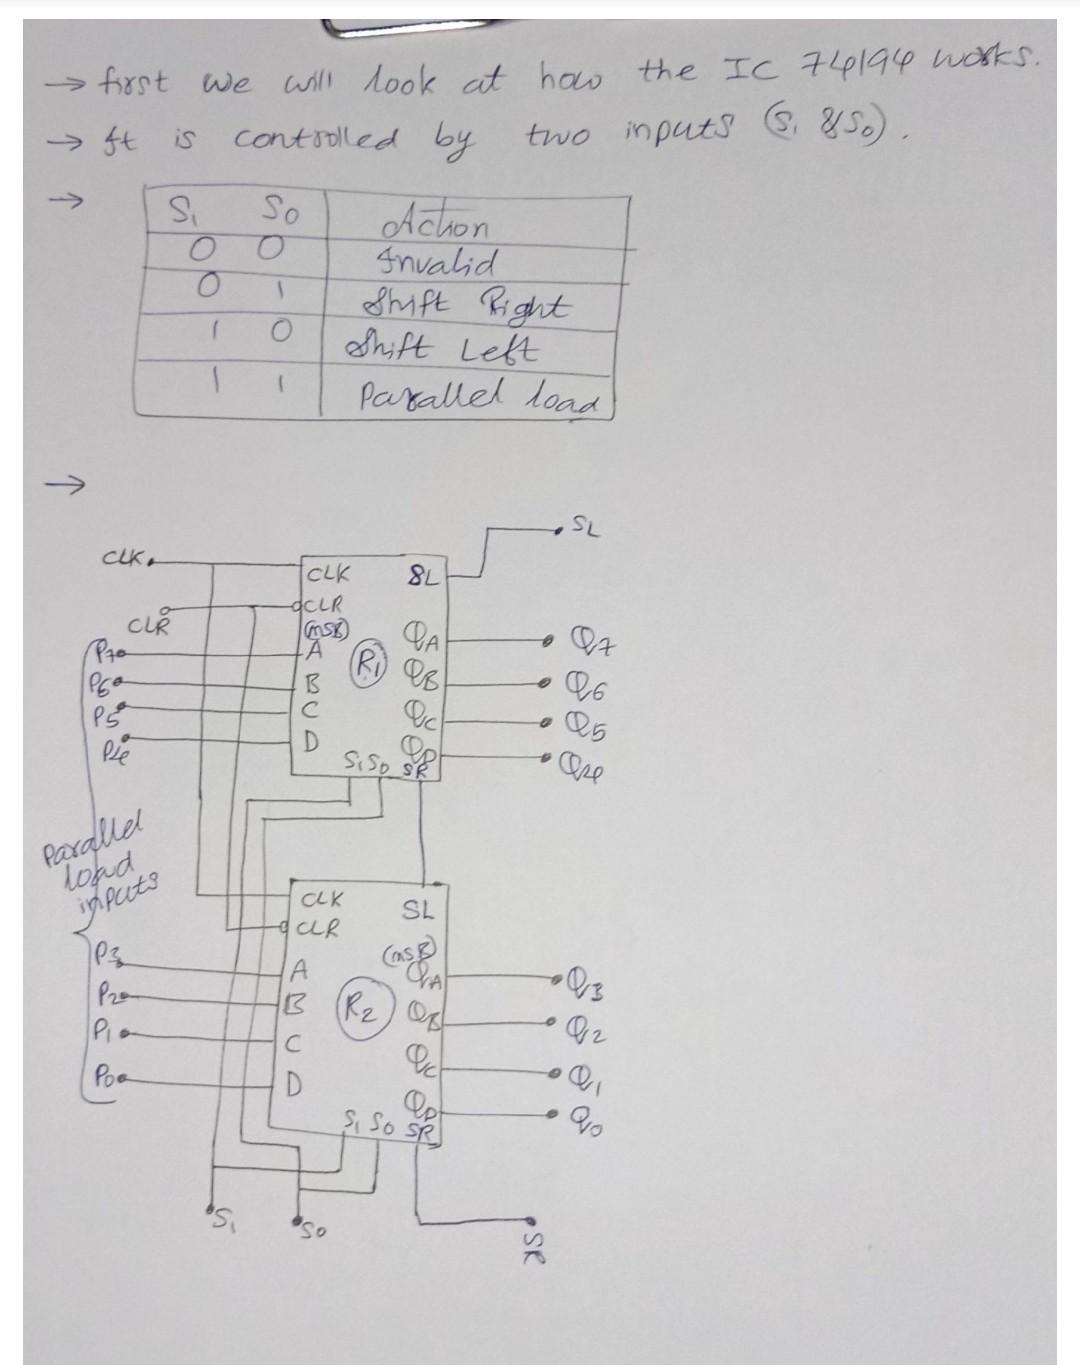 → first we will look at how the IC 74194 works.
→ It is controlled by two inputs (S1 & S0).
→
S1 S0 Action
0 0 Invalid
0 1 Shift Right
1 0 Shift Left
1 1 Parallel load
→
SL
CLK
CLK SL
CLR
CLR
(MSB)
P7 A R1 QA Q7
P6 B QB Q6
P5 C QC Q5
P4 D QD Q4
S1 S0 SR
Parallel
load
inputs
CLK SL
CLR
(MSB)
P3 A QA Q3
P2 B R2 QB Q2
P1 C QC Q1
P0 D QD Q0
S1 S0 SR
S1 S0 SR